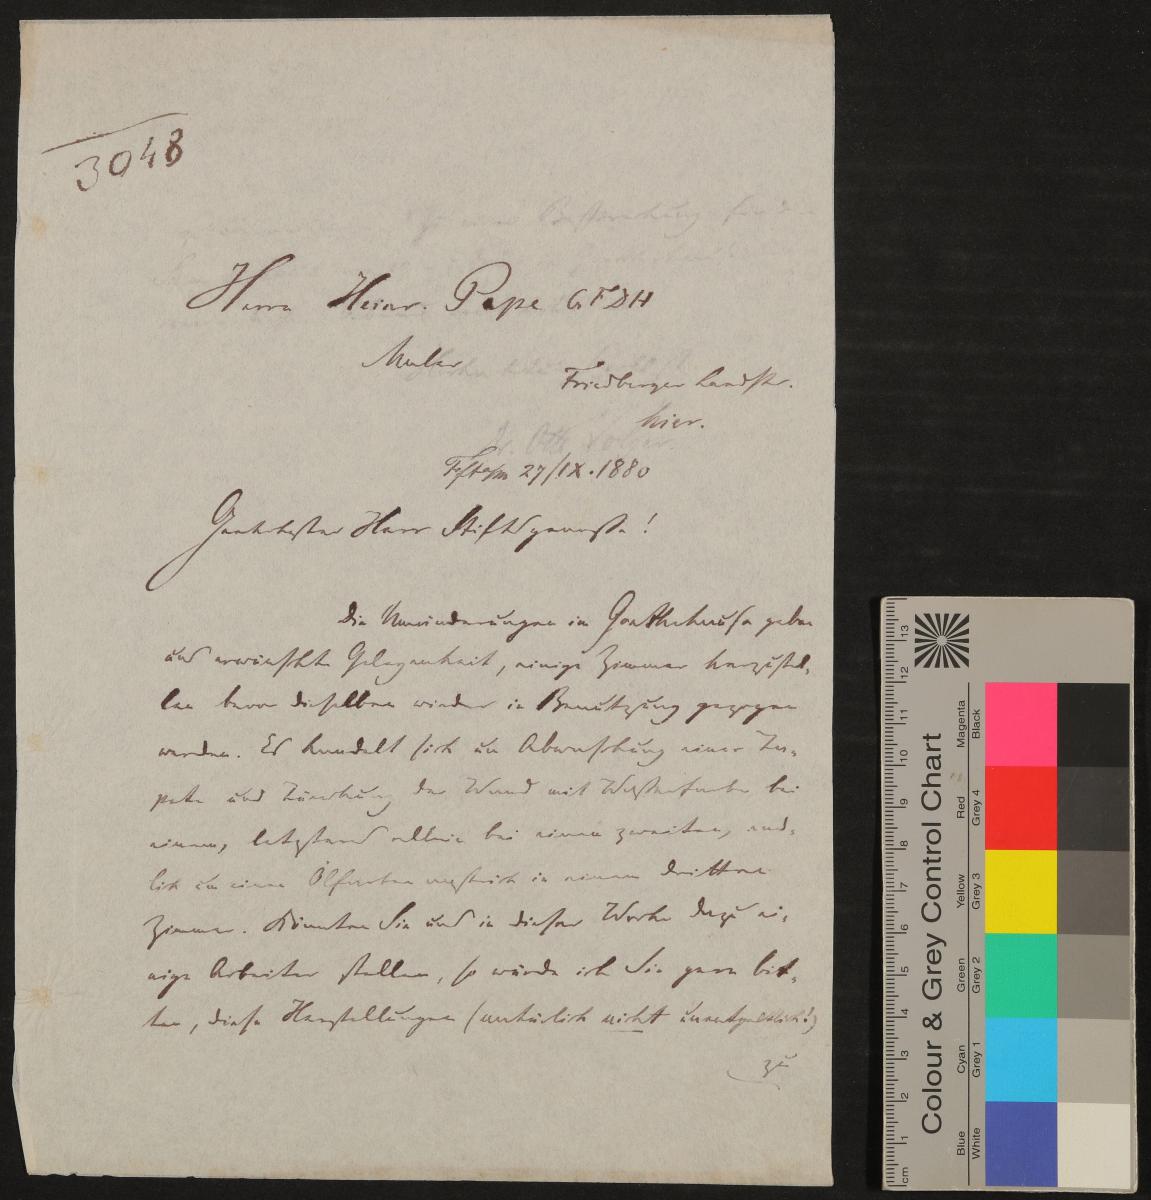 3048
Herrn Heinr. Pape GFDH
Maler
Friedberger Landstr.
hier.
27/IX.1880
Geehrtester Herr Stiftsgenosse!
Die Umänderungen im Goethehause geben
uns erwünschte Gelegenheit, einige Zimmer herzustel-
len bevor dieselben wieder in Benutzung gezogen
werden. Es handelt sich um Abwaschung einer Ta-
pete und der Wand mit Wasserfarbe bei
einem, letzteres allein bei einem zweiten, end-
lich um einen Ölfarbenanstrich in einem dritten
Zimmer. Könnten Sie uns in dieser Woche dazu ei-
nige Arbeiter stellen, so würde ich Sie gern bit-
ten, diese Herstellungen (natürlich nicht unentgeltlich!)
zu
Colour & Grey Control Chart
Blue Cyan Green Yellow Red Magenta
White Grey 1 Grey 2 Grey 3 Grey 4 Black
cm 1 2 3 4 5 6 7 8 9 10 11 12 13